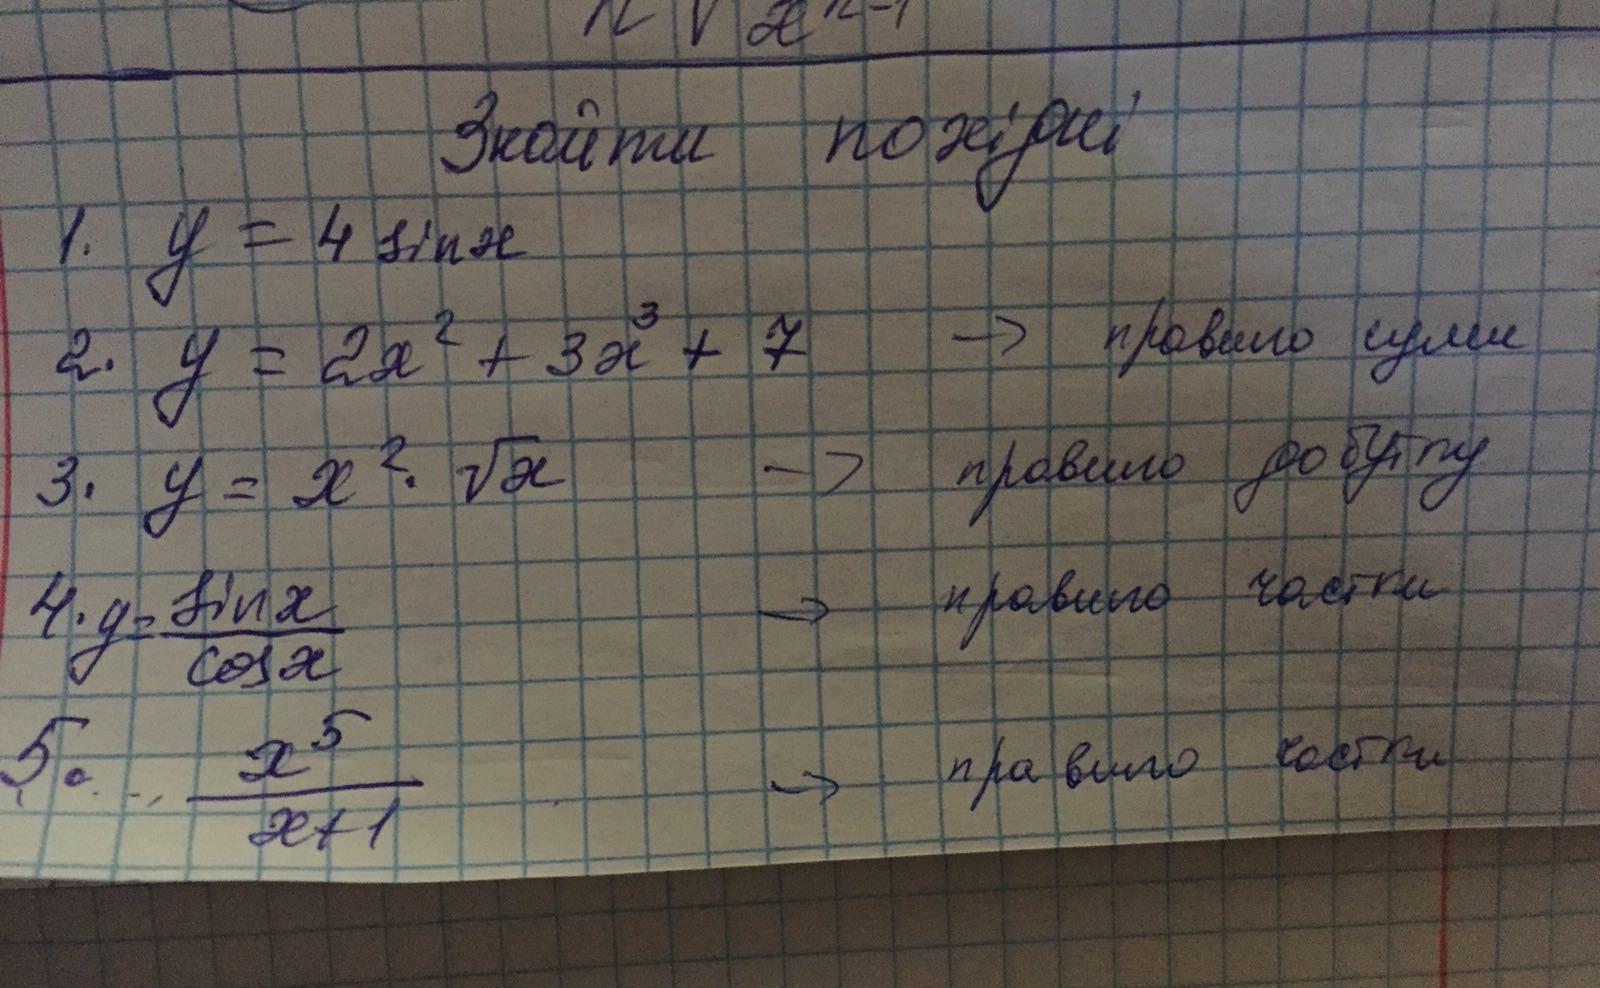 n√xⁿ⁻¹
Знайти похідні
1. y = 4 sinx
2. y = 2x² + 3x³ + 7 → правило суми
3. y = x² · √x → правило добутку
4. y = sinx / cosx → правило частки
5. x⁵ / x+1 → правило частки